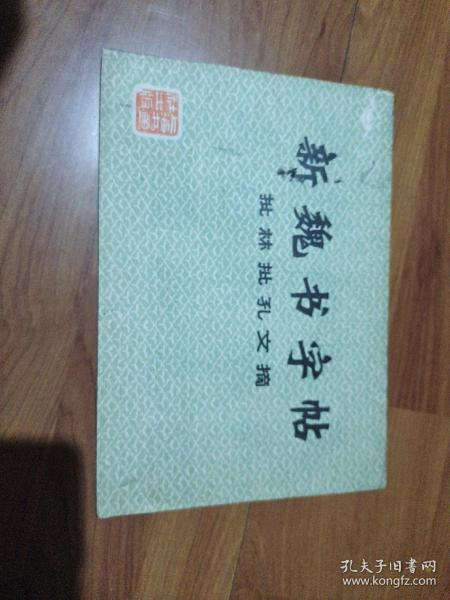 新魏书字帖
批林批孔文摘
上海书画出版社
孔夫子旧书网
www.kongfz.com